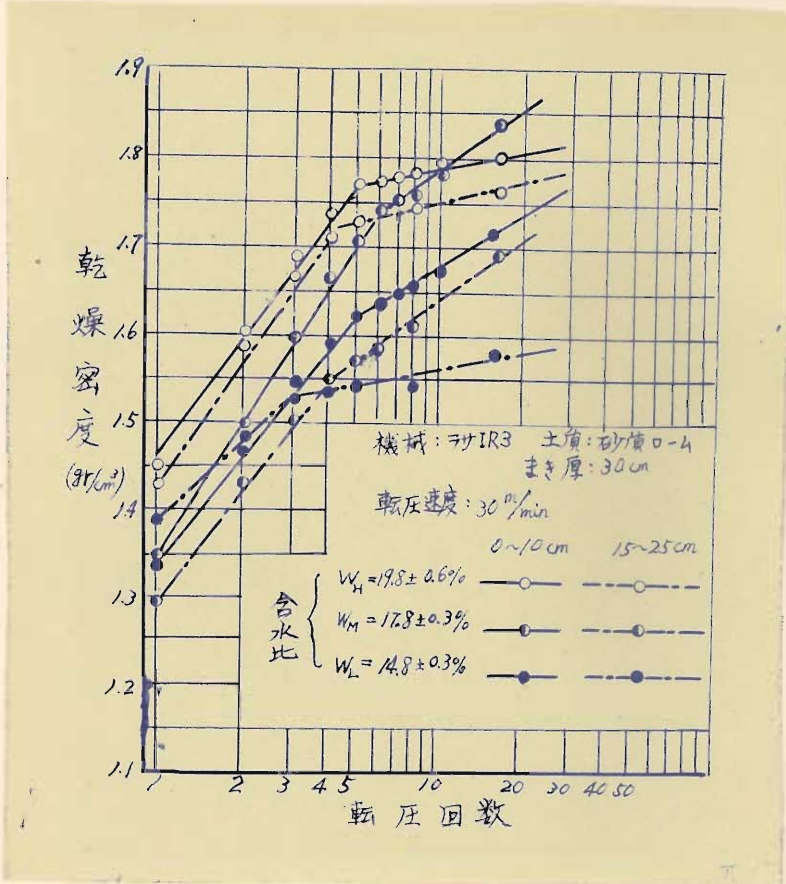 1.9
1.8
1.7
1.6
1.5
1.4
1.3
1.2
1.1
乾燥密度
(gr/cm³)
機械:ラサIR3 土質:砂質ローム
まき厚:30cm
転圧速度:30 m/min
0~10cm 15~25cm
含水比
W_H=19.8±0.6%
W_M=17.8±0.3%
W_L=14.8±0.3%
1 2 3 4 5 10 20 30 40 50
転圧回数